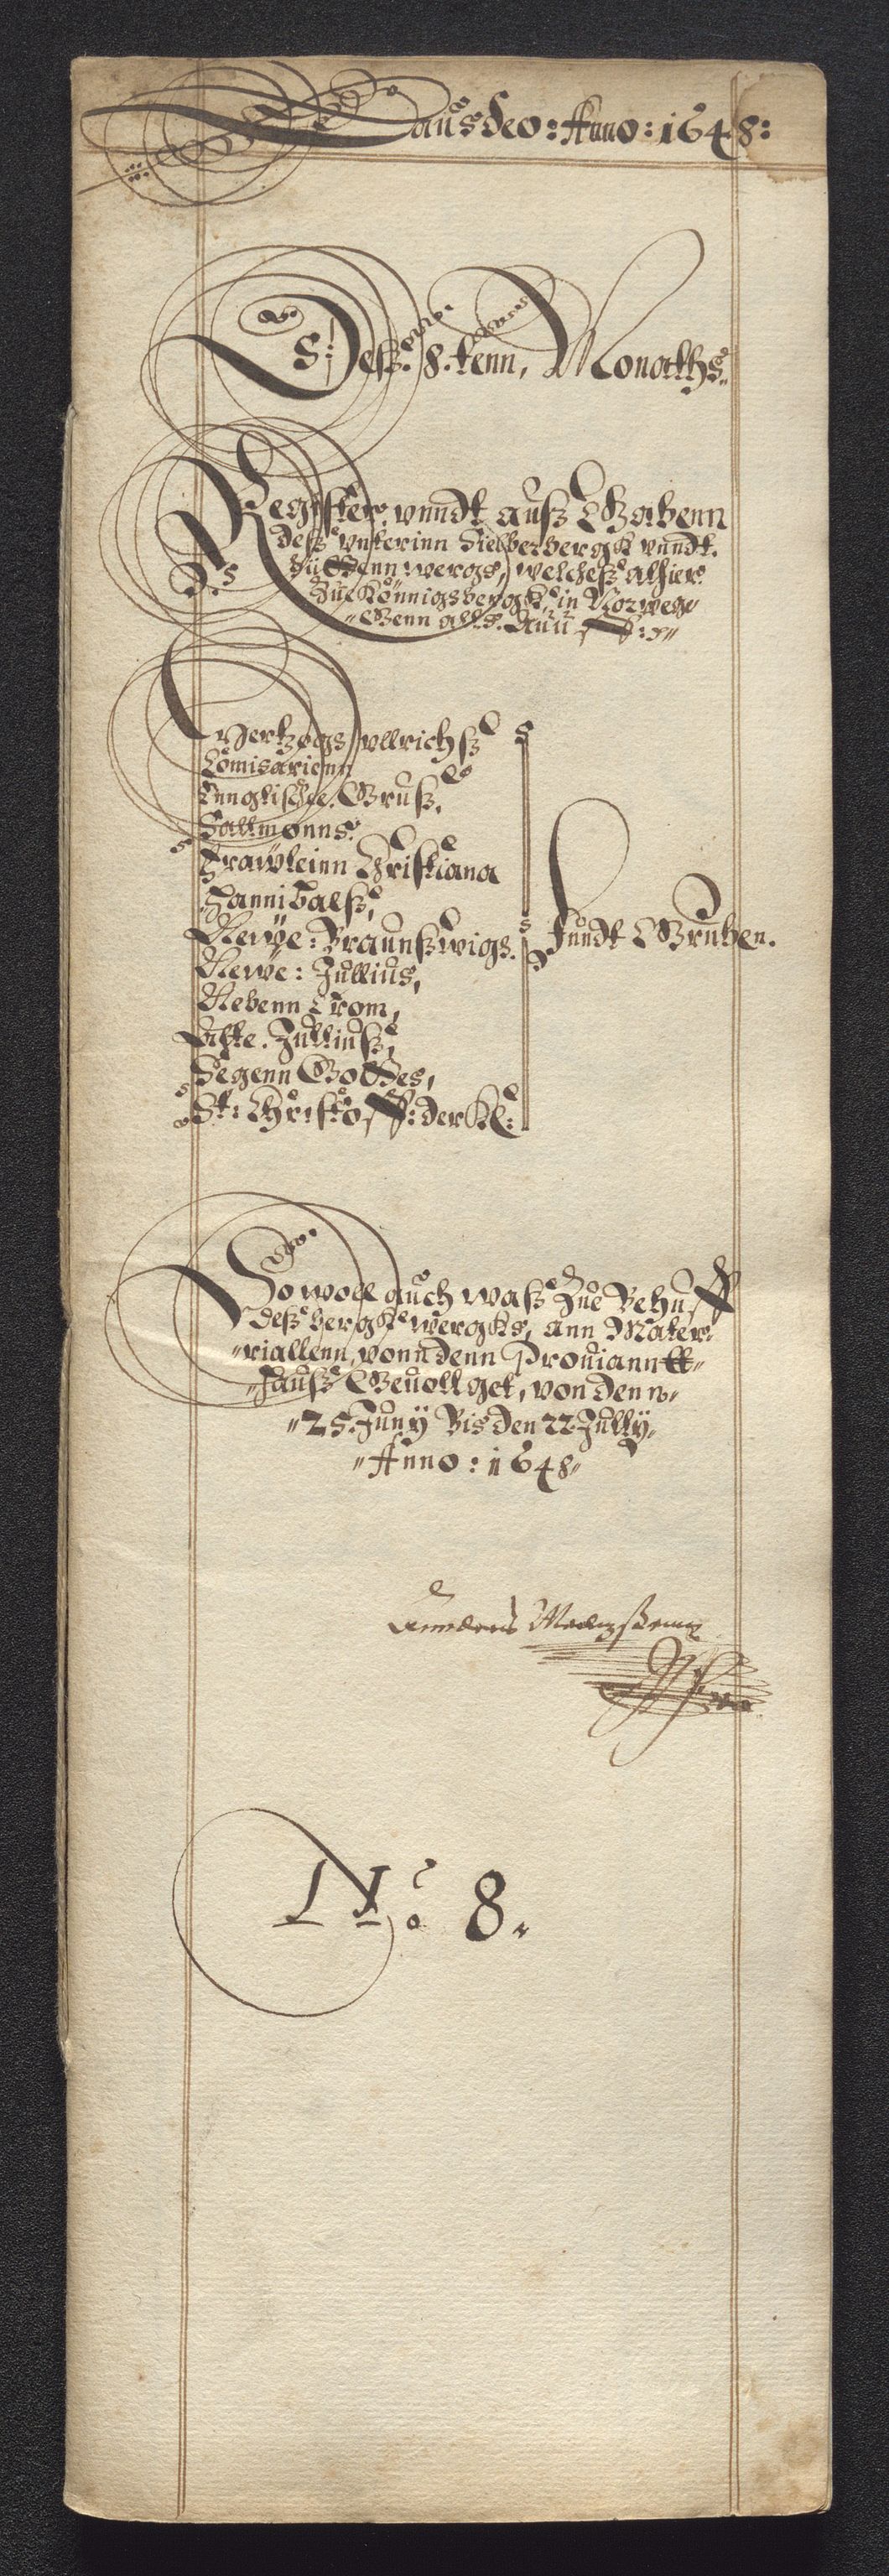 Laus deo: Anno: 1648:
Deß 8.tenn, Monaths
Register vnndt auß Gabenn
deß vnterinn Sielberbergk vnndt
Hüttenn wergs, welcheß alhier
Zue Könnigsbergk, in Norwe-
genn alls. Auff:
Hertzogs vllrichß
Comisarienn
Eenglische. Gruß,
Sallmonns
Frawleinn Christiana
Hannibalß,
Newe: Braunßwigs.
Fundt Gruben.
Newe: Jullius,
Nebenn Trom,
Alte. Julliuß,
Segenn Gottes,
St: Christoff: der Kl:
So woll auch waß Zue Behuff
deß bergk wergks, ann Mater-
riallenn, vonn denn Prouianntt
Hauß Geuollget, von denn
25. Juny Bis den 22 Jully
Anno: 1648
No: 8.